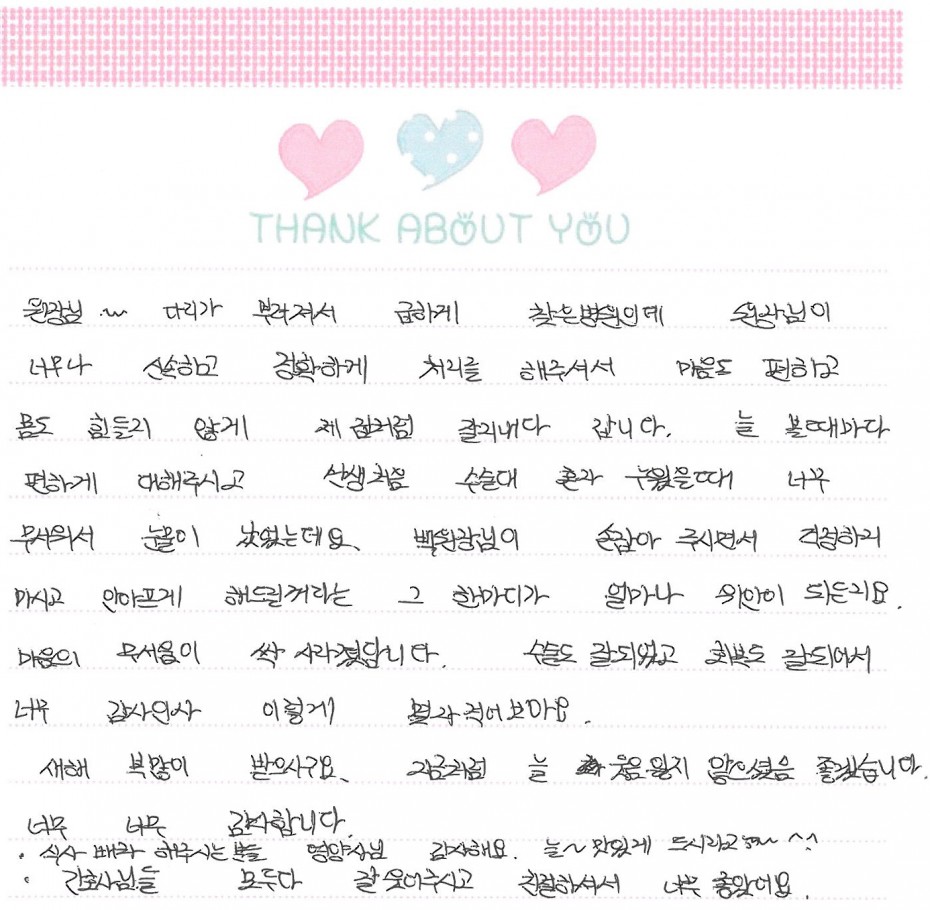 THANK ABOUT YOU
원장님 ~ 다리가 부러져서 급하게 찾은병원인데 원장님이
너무나 신속하고 정확하게 처리를 해주셔서 마음도 편하고
몸도 힘들지 않게 제 집처럼 잘지내다 갑니다. 늘 볼때마다
편하게 대해주시고 선생처음 수술대 혼자 누웠을때 너무
무서워서 눈물이 났었는데요. 백원장님이 손잡아 주시면서 걱정하지
마시고 안아프게 해드릴꺼라는 그 한마디가 얼마나 위안이 되든지요.
마음의 무서움이 싹 사라졌답니다. 수술도 잘되었고 회복도 잘되어서
너무 감사인사 이렇게 몇자 적어보아요.
새해 복많이 받으시구요. 지금처럼 늘 웃음잃지 않으셨음 좋겠습니다.
너무 너무 감사합니다.
· 식사 배려 해주시는분들 영양사님 감사해요. 늘~ 맛있게 드시라고 ^^
· 간호사님들 모두다 잘 웃어주시고 친절하셔서 너무 좋았어요.